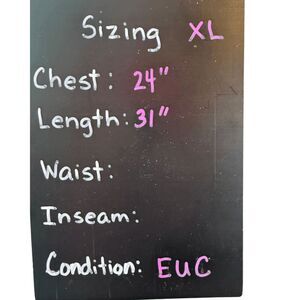 Sizing XL
Chest: 24"
Length: 31"
Waist:
Inseam:
Condition: EUC